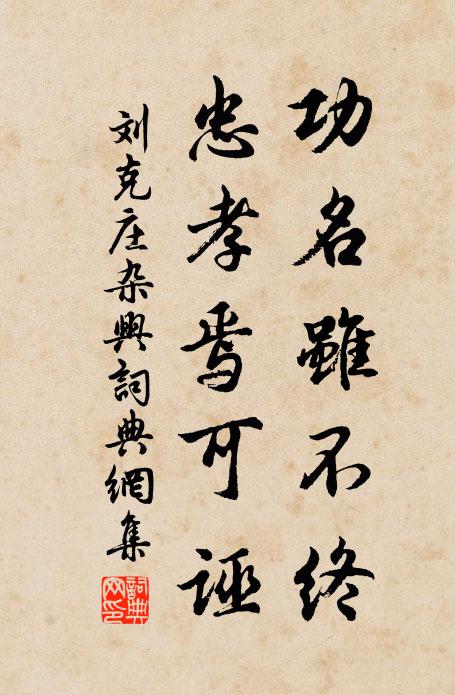 功名雖不终
忠孝焉可誣
刘克庄杂興詞典網集
詞典网印